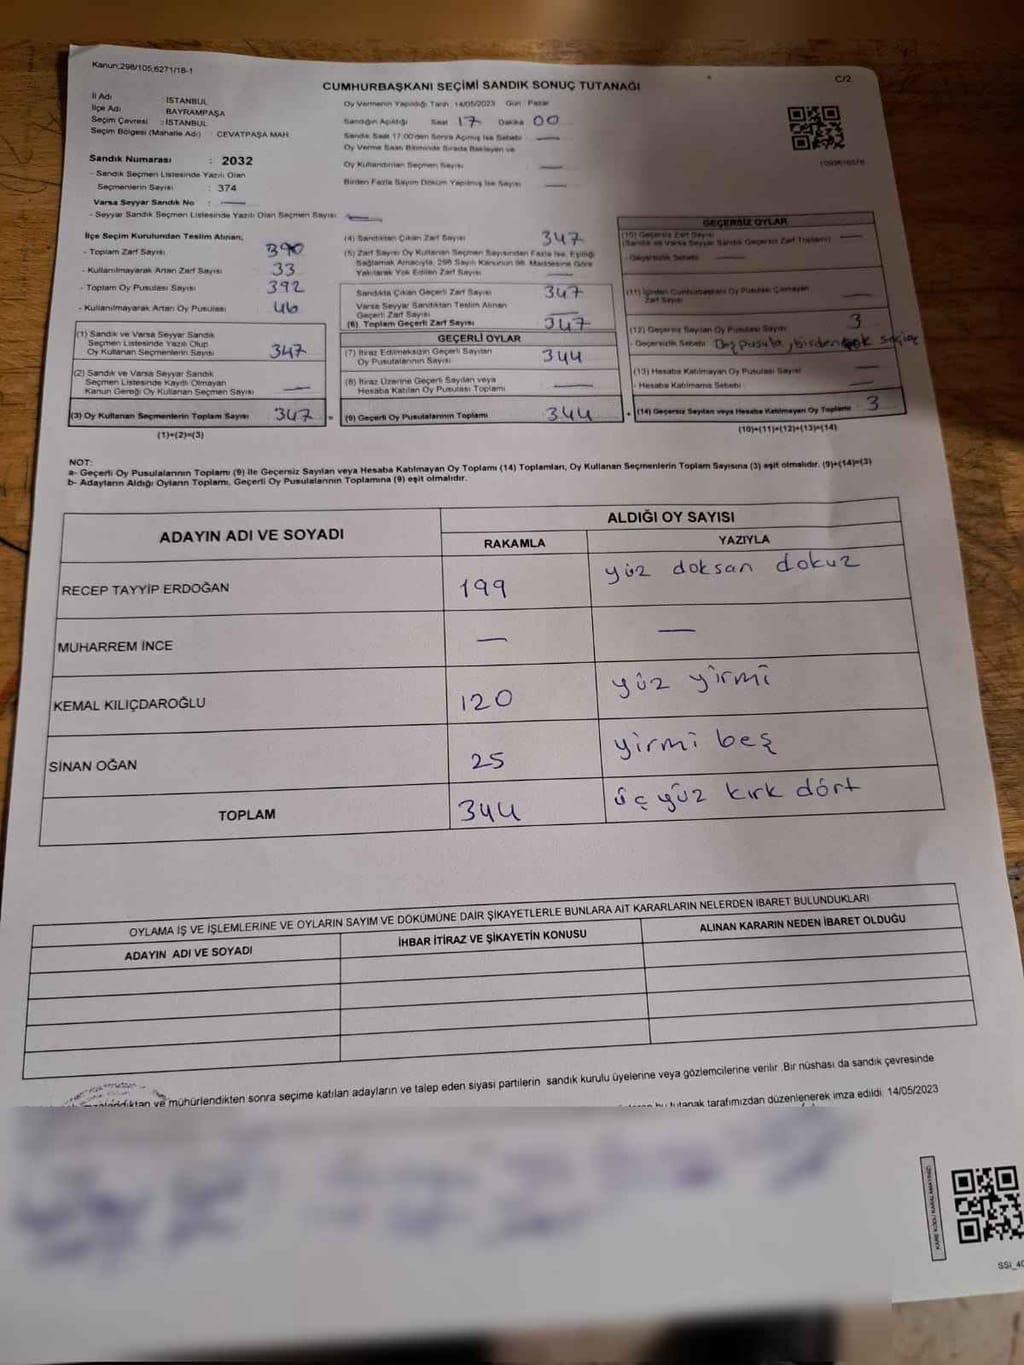 Kanun:298/105;6271/18-1
C/2
CUMHURBAŞKANI SEÇİMİ SANDIK SONUÇ TUTANAĞI
İl Adı : İSTANBUL
İlçe Adı : BAYRAMPAŞA
Seçim Çevresi : İSTANBUL
Seçim Bölgesi (Mahalle Adı) : CEVATPAŞA MAH.
Sandık Numarası : 2032
- Sandık Seçmen Listesinde Yazılı Olan
Seçmenlerin Sayısı : 374
Varsa Seyyar Sandık No : —
- Seyyar Sandık Seçmen Listesinde Yazılı Olan Seçmen Sayısı : —
Oy Vermenin Yapıldığı Tarih 14/05/2023 Gün : Pazar
Sandığın Açıldığı Saat 17 Dakika 00
Sandık Saat 17:00'den Sonra Açılmış İse Sebebi —
Oy Verme Saati Bitiminde Sırada Bekleyen ve
Oy Kullandırılan Seçmen Sayısı —
Birden Fazla Sayım Döküm Yapılmış İse Sayısı —
İlçe Seçim Kurulundan Teslim Alınan;
- Toplam Zarf Sayısı 390
- Kullanılmayarak Artan Zarf Sayısı 33
- Toplam Oy Pusulası Sayısı 392
- Kullanılmayarak Artan Oy Pusulası 46
(1) Sandık ve Varsa Seyyar Sandık
Seçmen Listesinde Yazılı Olup
Oy Kullanan Seçmenlerin Sayısı 347
(2) Sandık ve Varsa Seyyar Sandık
Seçmen Listesinde Kaydı Olmayan
Kanun Gereği Oy Kullanan Seçmen Sayısı —
(3) Oy Kullanan Seçmenlerin Toplam Sayısı 347
(1)+(2)=(3)
(4) Sandıktan Çıkan Zarf Sayısı 347
(5) Zarf Sayısı Oy Kullanan Seçmen Sayısından Fazla İse, Eşitliği
Sağlamak Amacıyla, 298 Sayılı Kanunun 98. Maddesine Göre
Yakılarak Yok Edilen Zarf Sayısı —
Sandıkta Çıkan Geçerli Zarf Sayısı 347
Varsa Seyyar Sandıktan Teslim Alınan
Geçerli Zarf Sayısı —
(6) Toplam Geçerli Zarf Sayısı 347
GEÇERLİ OYLAR
(7) İtiraz Edilmeksizin Geçerli Sayılan
Oy Pusulalarının Sayısı 344
(8) İtiraz Üzerine Geçerli Sayılan veya
Hesaba Katılan Oy Pusulası Toplamı —
(9) Geçerli Oy Pusulalarının Toplamı 344
GEÇERSİZ OYLAR
(10) Geçersiz Zarf Sayısı
(Sandık ve Varsa Seyyar Sandık Geçersiz Zarf Toplamı) —
- Geçersizlik Sebebi —
(11) İçinden Cumhurbaşkanı Oy Pusulası Çıkmayan
Zarf Sayısı —
(12) Geçersiz Sayılan Oy Pusulası Sayısı 3
- Geçersizlik Sebebi pusula, birden çok
(13) Hesaba Katılmayan Oy Pusulası Sayısı —
- Hesaba Katılmama Sebebi —
(14) Geçersiz Sayılan veya Hesaba Katılmayan Oy Toplamı 3
(10)+(11)+(12)+(13)=(14)
NOT:
a- Geçerli Oy Pusulalarının Toplamı (9) ile Geçersiz Sayılan veya Hesaba Katılmayan Oy Toplamı (14) Toplamları, Oy Kullanan Seçmenlerin Toplam Sayısına (3) eşit olmalıdır. (9)+(14)=(3)
b- Adayların Aldığı Oyların Toplamı, Geçerli Oy Pusulalarının Toplamına (9) eşit olmalıdır.
ADAYIN ADI VE SOYADI
ALDIĞI OY SAYISI
RAKAMLA YAZIYLA
RECEP TAYYİP ERDOĞAN 199 yüz doksan dokuz
MUHARREM İNCE — —
KEMAL KILIÇDAROĞLU 120 yüz yirmi
SİNAN OĞAN 25 yirmi beş
TOPLAM 344 üç yüz kırk dört
OYLAMA İŞ VE İŞLEMLERİNE VE OYLARIN SAYIM VE DÖKÜMÜNE DAİR ŞİKAYETLERLE BUNLARA AİT KARARLARIN NELERDEN İBARET BULUNDUKLARI
ADAYIN ADI VE SOYADI
İHBAR İTİRAZ VE ŞİKAYETİN KONUSU
ALINAN KARARIN NEDEN İBARET OLDUĞU
ve mühürlendikten sonra seçime katılan adayların ve talep eden siyasi partilerin sandık kurulu üyelerine veya gözlemcilerine verilir. Bir nüshası da sandık çevresinde
bu tutanak tarafımızdan düzenlenerek imza edildi. 14/05/2023